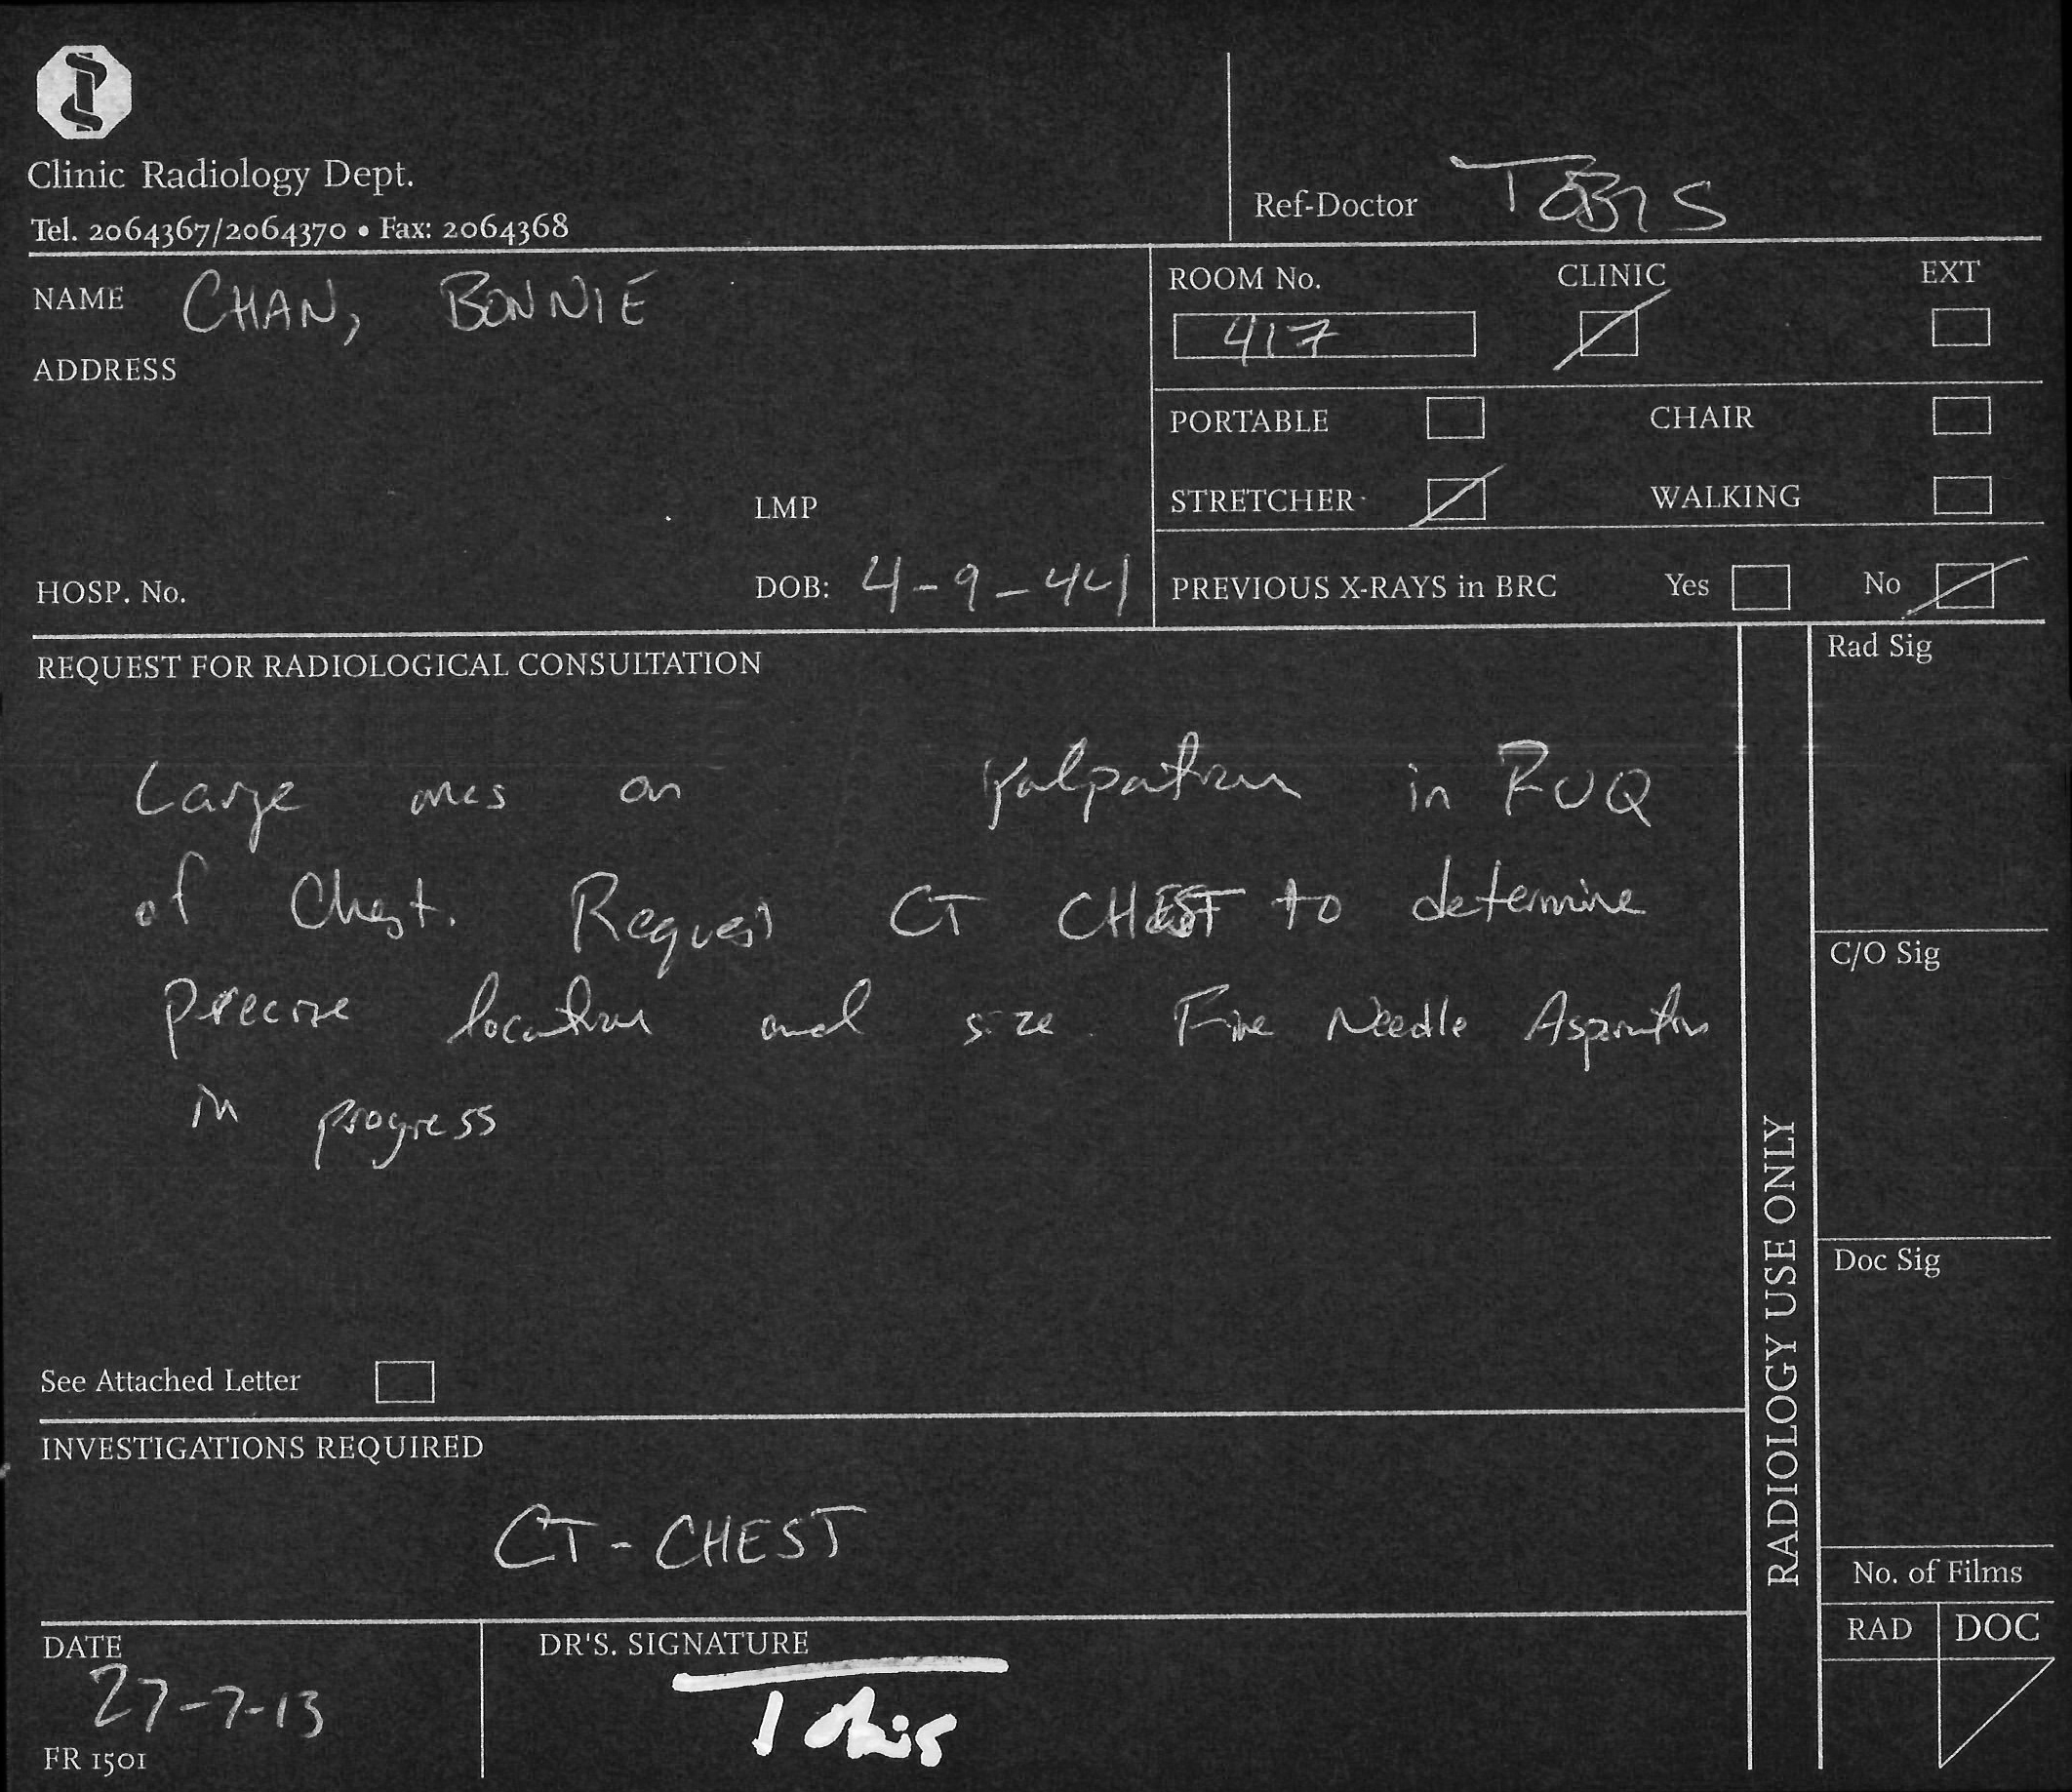 Clinic Radiology Dept.
Tel. 2064367/2064370 • Fax: 2064368
Ref-Doctor TOBIS
NAME CHAN, BONNIE
ADDRESS
LMP
HOSP. No.
DOB: 4-9-44
ROOM No. CLINIC EXT
417
PORTABLE CHAIR
STRETCHER WALKING
PREVIOUS X-RAYS in BRC Yes No
REQUEST FOR RADIOLOGICAL CONSULTATION
Large on palpation in RUQ
of Chest. Request CT CHEST to determine
precise location and size. Fine Needle Aspiration
in progress
See Attached Letter
INVESTIGATIONS REQUIRED
CT-CHEST
DATE
27-7-13
FR 1501
DR'S. SIGNATURE
Tobis
RADIOLOGY USE ONLY
Rad Sig
C/O Sig
Doc Sig
No. of Films
RAD DOC